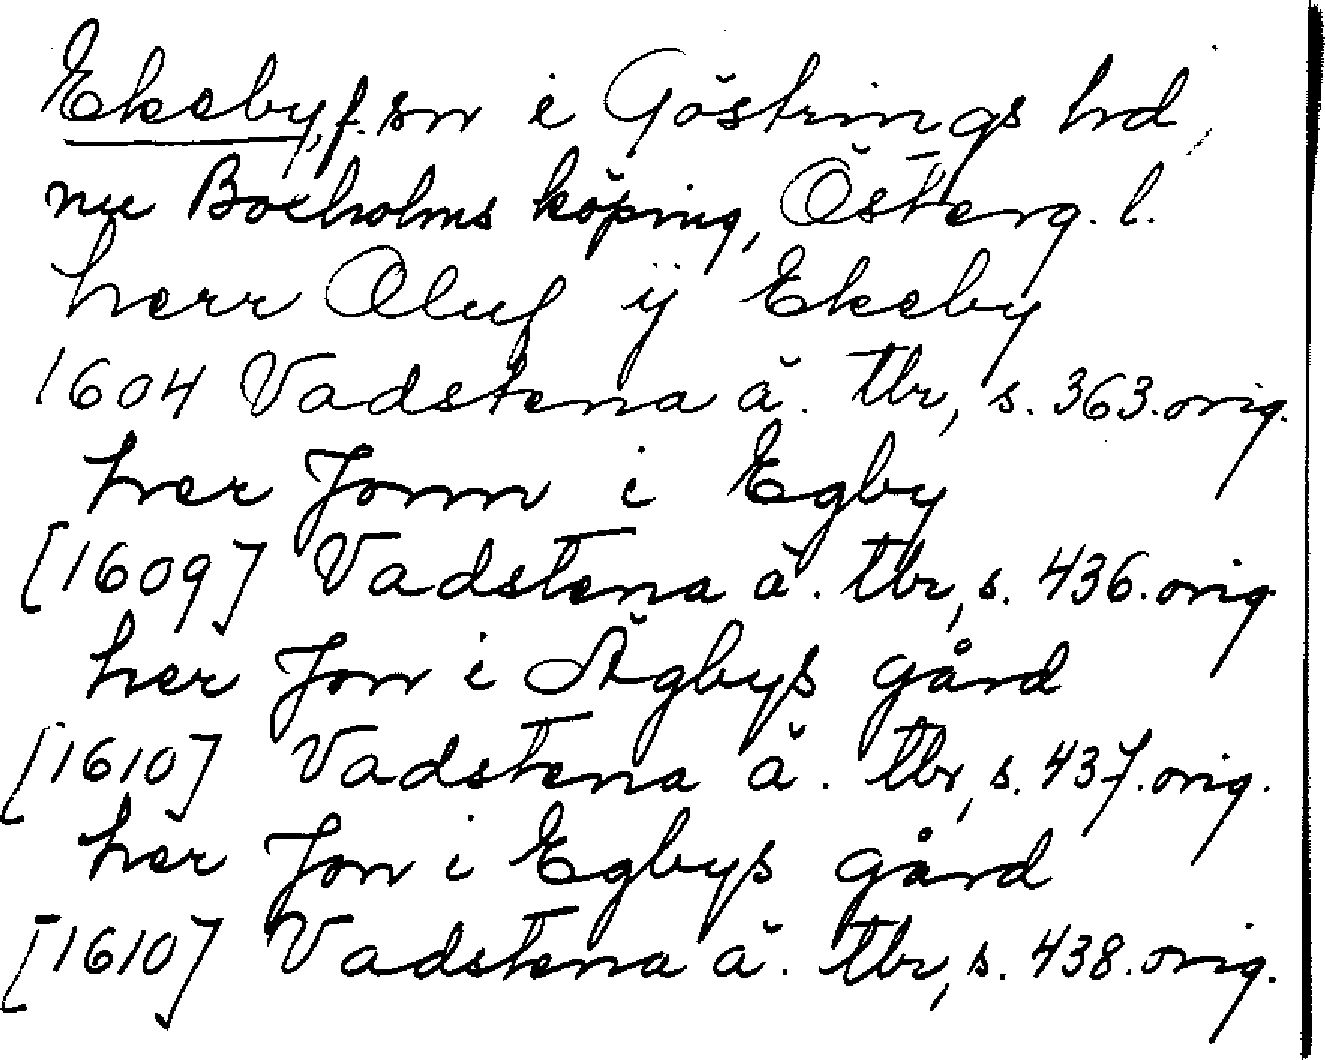 Ekeby, f. sn i Göstrings hd,
nu Boxholms köping, Österg. l.
herr Oluf ÿ Ekeby
1604 Vadstena ä. tbr, s. 363. orig.
her Jonn i Egby
[1609] Vadstena ä. tbr, s. 436. orig.
her Jon i Ägbyß gård
[1610] Vadstena ä. tbr, s. 437. orig.
her Jon i Egbyß gård
[1610] Vadstena ä. tbr, s. 438. orig.